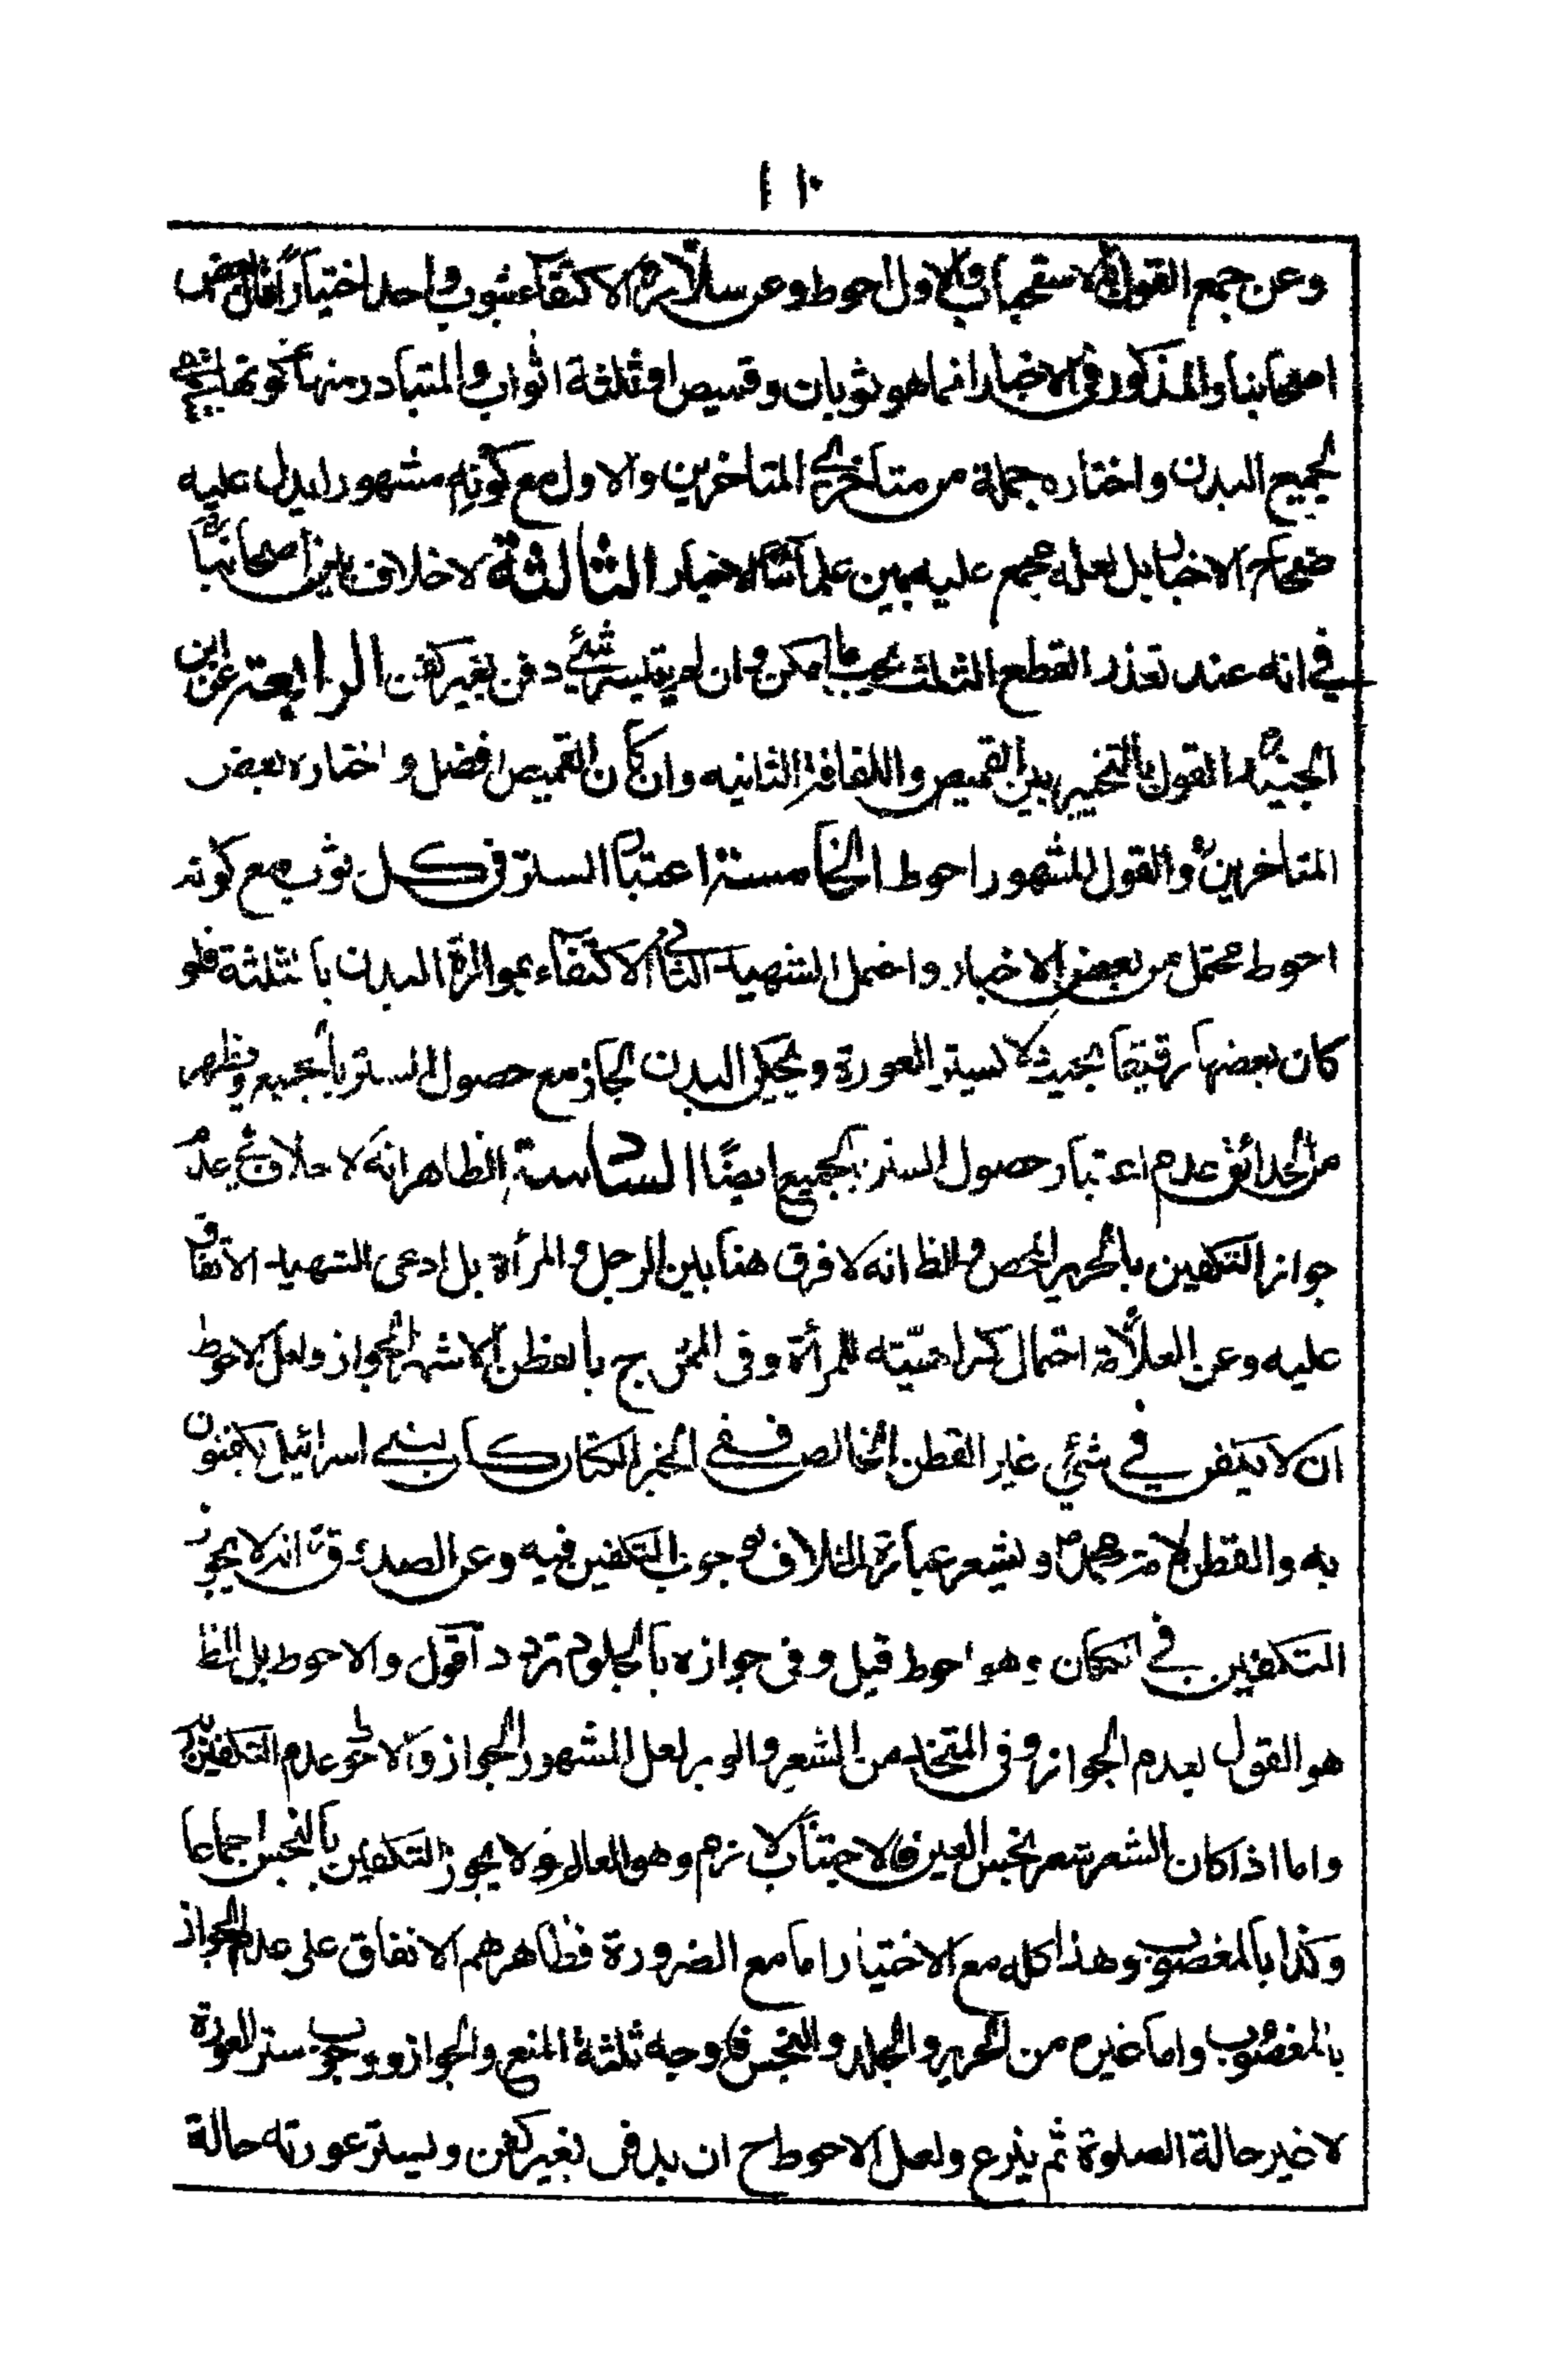 ١١٠
وعن جمع القول بالاستحباب والاول احوط وعن سلار ره الاكتفاء بثوب واحد اختيارا قال بعض
اصحابنا والمذكور في الاخبار انما هو ثوبان وقميص او ثلثة اثواب والمتبادر منها
لجميع البدن واختاره جملة من متاخري المتاخرين والاول مع كونه مشهورا يدل عليه
صحاح الاخبار بل لعله مجمع عليه بين علمائنا الاخيار الثالثة لا خلاف بين اصحابنا
في انه عند تعذر القطع الثلث يجب ما امكن وان لم يتيسر شئ دفن بغير كفن الرابعة عن ابن
الجنيد القول بالتخيير بين القميص واللفافة الثانيه وان كان القميص افضل واختاره بعض
المتاخرين والقول المشهور احوط الخامسة اعتبار الستر في كل ثوب مع كونه
احوط محتمل من بعض الاخبار واحتمل الشهيد الثاني الاكتفاء بمواراة البدن بالثلثة فلو
كان بعضها رقيقا بحيث لا يستر العورة ويحكي البدن لجاز مع حصول الستر بالجميع ويظهر
من الحدائق عدم اعتبار حصول الستر بالجميع ايضًا السادسة الظاهر انه لا خلاف في عدم
جواز التكفين بالحرير المحض والظ انه لا فرق هنا بين الرجل والمرأة بل ادعى الشهيد الاتفاق
عليه وعن العلامة احتمال كراهيته للمرأة وفى الممتزج بالقطن الاشهر الجواز ولعل الاحوط
ان لا يكفن في شئ غير القطن الخالص ففي الخبر الكتان كان بنى اسرائيل يكفنون
به والقطن لامة محمد ص ويشعر عبارة الخلاف بوجوب التكفين فيه وعن الصدوق انه لا يجوز
التكفين في الكتان وهو احوط قيل وفى جوازه بالجلود تردد اقول والاحوط بل الظ
هو القول بعدم الجواز وفى المتخذ من الشعر والوبر لعل المشهور الجواز والاحوط عدم التكفين به
واما اذا كان الشعر شعر نجس العين فالاجتناب لازم وهو العالم ولا يجوز التكفين بالنجس اجماعا
وكذا بالمغصوب وهذا كله مع الاختيار اما مع الضرورة فظاهرهم الاتفاق على عدم الجواز
بالمغصوب واما غيره من الحرير والجلد والنجس فاوجه ثلثة المنع والجواز ووجوب ستر العورة
لا غير حالة الصلوة ثم ينزع ولعل الاحوط ح ان يدفن بغير كفن ويستر عورته حالة